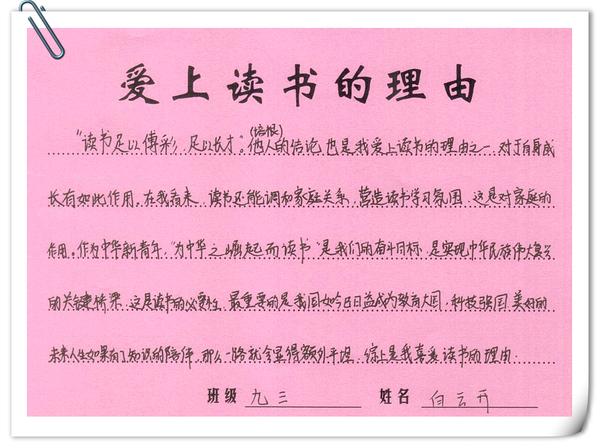 爱上读书的理由
"读书足以傅彩，足以长才"。(培根)他人的结论也是我爱上读书的理由之一. 对于自身成
长有如此作用。在我看来，读书还能调和家庭关系，营造读书学习氛围，这是对家庭的
作用。作为中华新青年，"为中华之崛起而读书"是我们的奋斗目标，是实现中华民族伟大复兴
的关键桥梁，这是读书的必要性。最重要的是我国如今日益成为教育大国，科技强国，美好的
未来人生如果有了知识的陪伴，那么一路就会显得额外平坦，综上是我喜爱读书的理由.
班级 九三 姓名 白云开